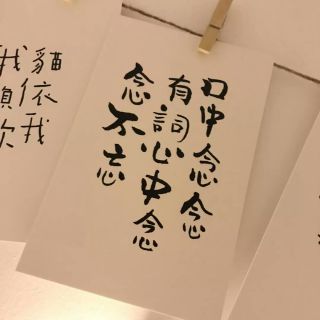 口中念念
有詞心中念
念不忘
貓依我
我